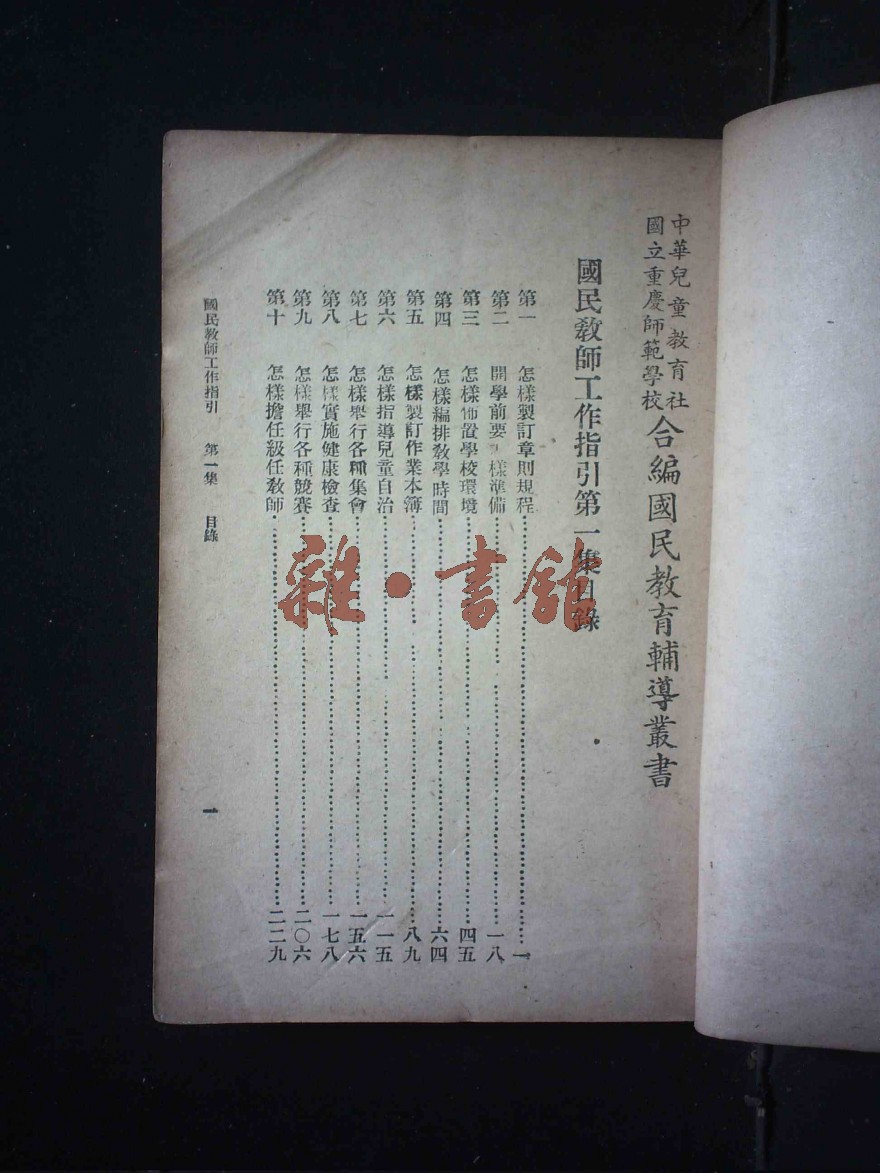 中華兒童教育社
國立重慶師範學校
合編國民教育輔導叢書
國民教師工作指引第一集目錄
第一 怎樣製訂章則規程 一
第二 開學前要 樣準備 一八
第三 怎樣佈置學校環境 四五
第四 怎樣編排教學時間 六四
第五 怎樣製訂作業本簿 八九
第六 怎樣指導兒童自治 一一五
第七 怎樣舉行各種集會 一五六
第八 怎樣實施健康檢查 一七八
第九 怎樣舉行各種競賽 二〇六
第十 怎樣擔任級任教師 二二九
國民教師工作指引 第一集 目錄 一
雜·書館